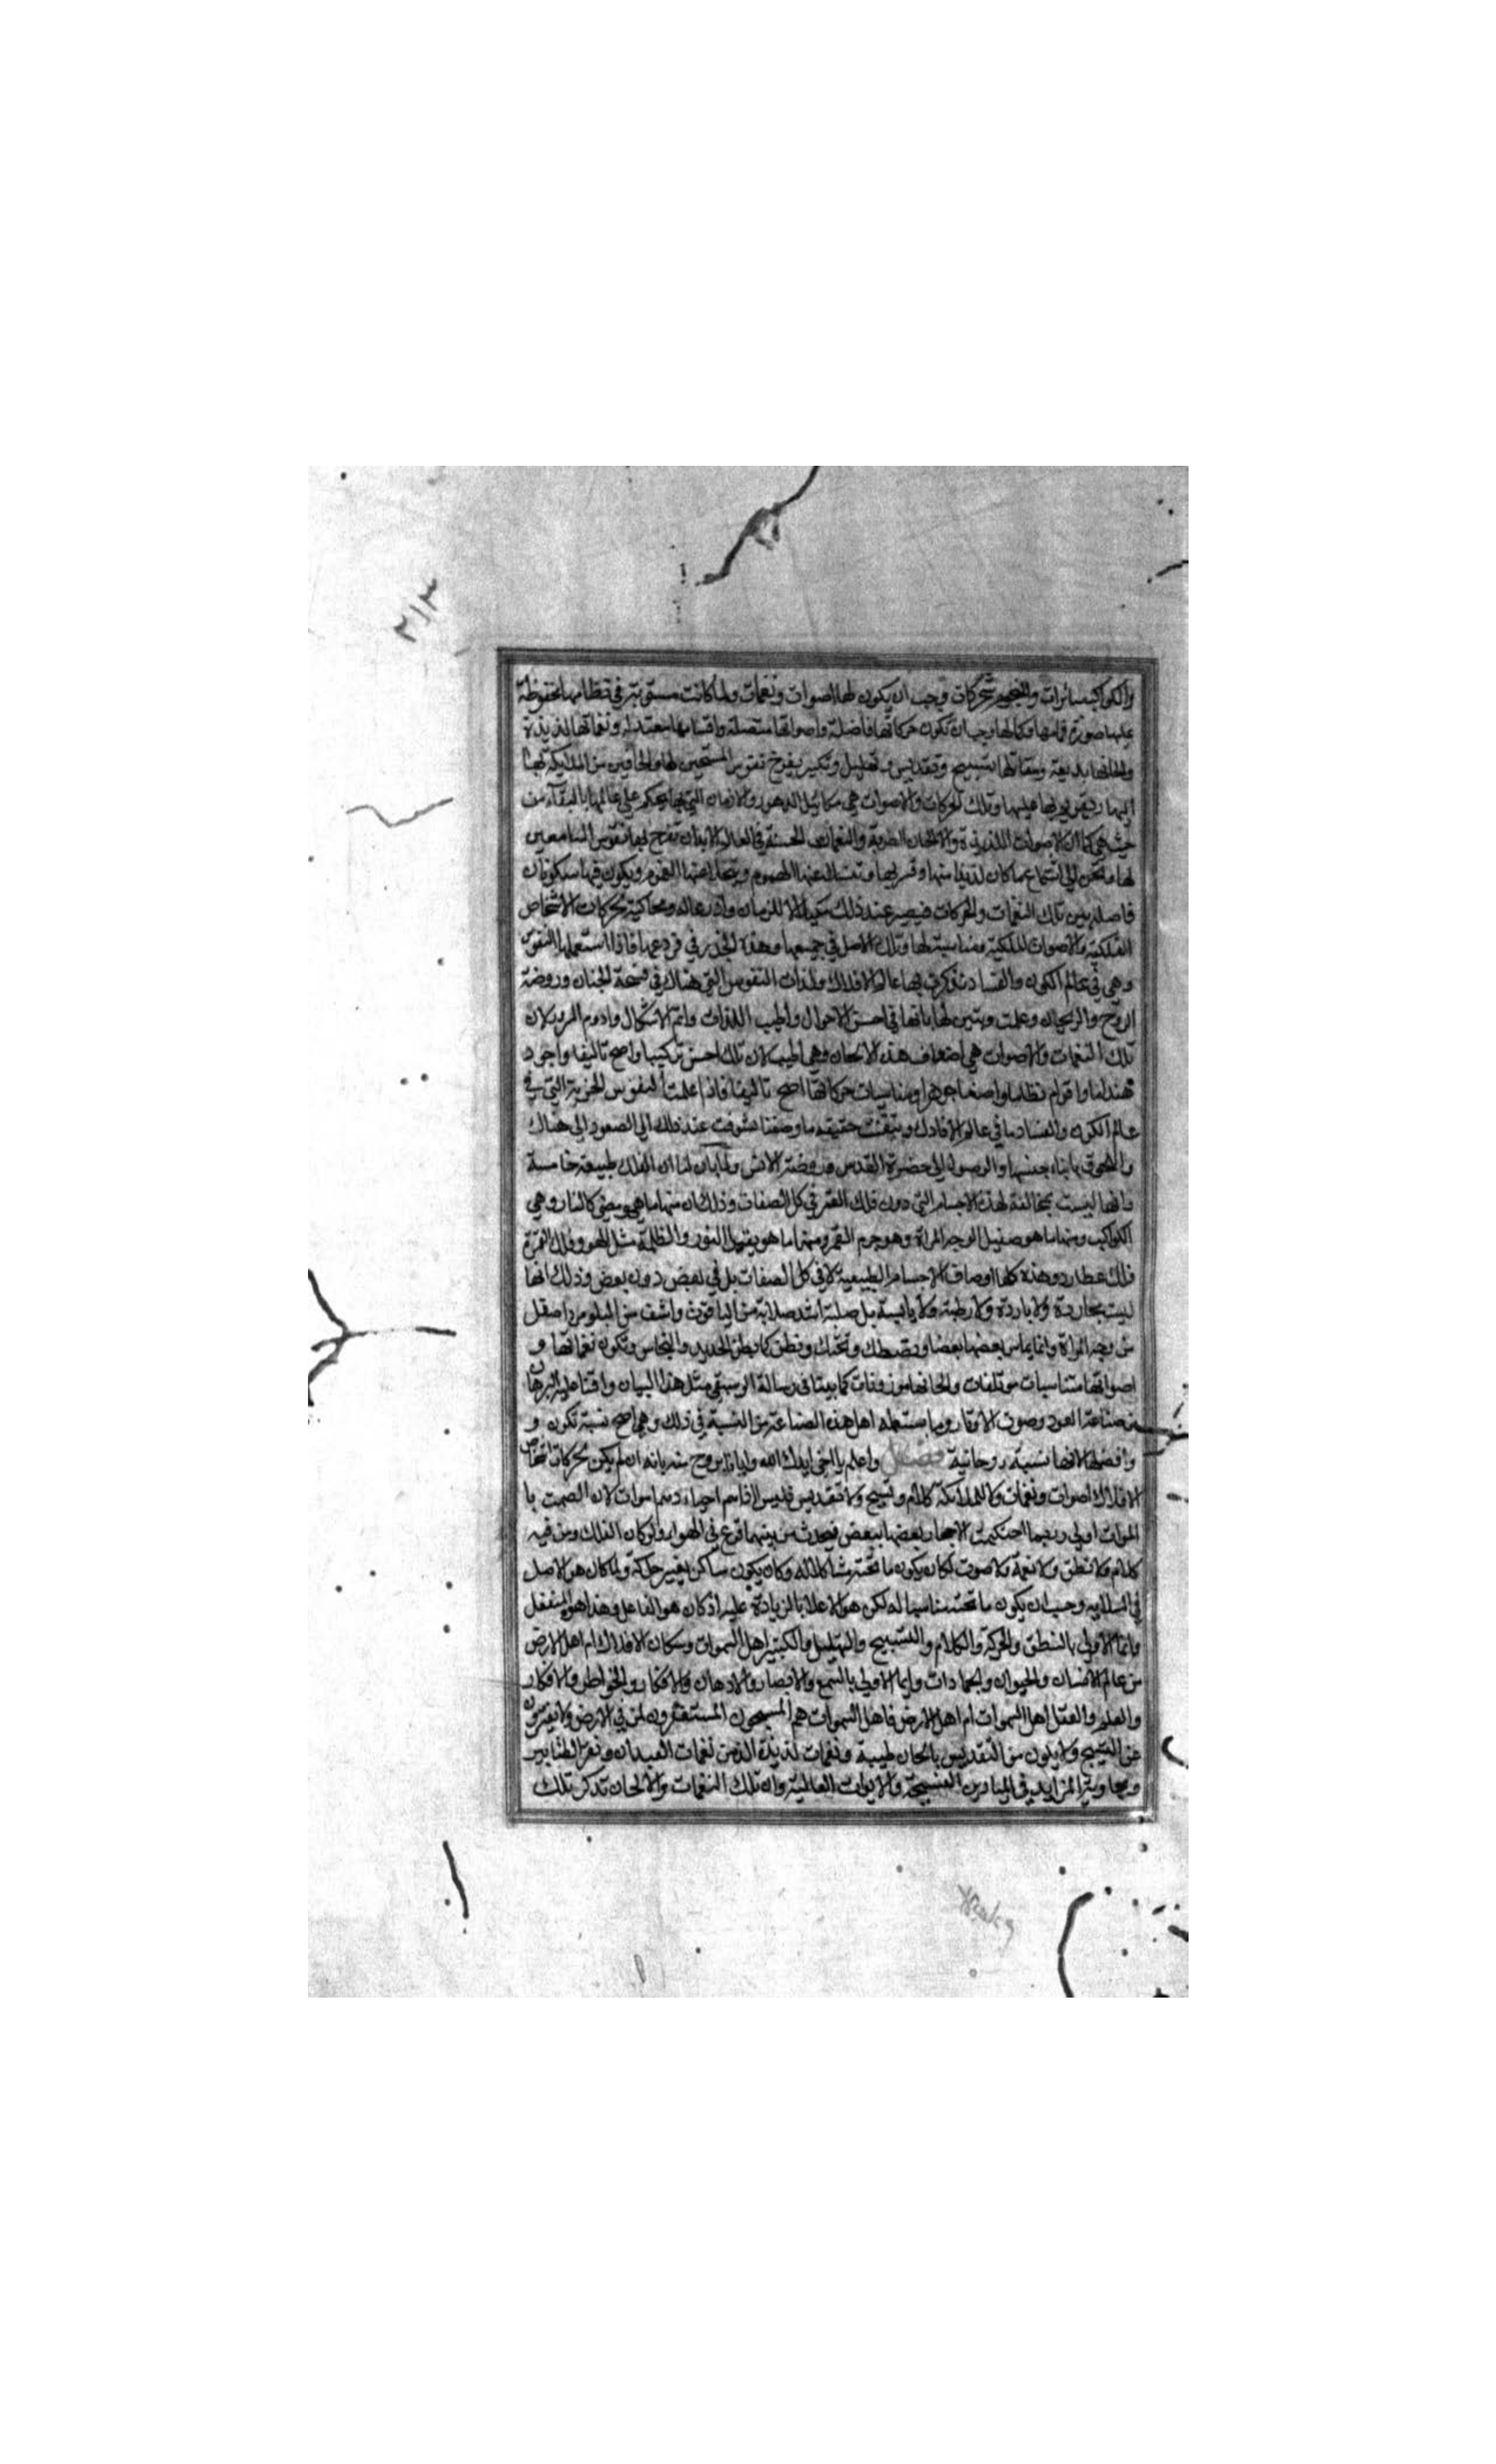 ٢١٣
والكواكب سائرات والنجوم متحركات وجب ان يكون لها اصوات ونغمات ولما كانت مستوية في نظامها محفوظة
عليها صورة قوامها وكمالها وجب ان تكون حركاتها فاضلة واصواتها متصلة واقسامها معتدلة ونغماتها لذيذة
والحانها بديعة ومقالتها تسبيح وتقديس وتهليل وتكبير يفرح نفوس المستمعين لها والحافين من الملائكة بها
عليها وتلك الحركات والاصوات هي مكائيل الدهور والازمان التي بها يحكم على عالمها بالبقاء من
حيث هي كما ان الاصوات اللذيذة والالحان المطربة والنغمات الحسنة في العالم تفرح بها نفوس السامعين
لها ما كان لذيذا منها وتسر بها عنها الهموم عنها الغموم ويكون فيها سكونات
فاصلة بين تلك النغمات والحركات فيصير عند ذلك مكيالا للزمان ومحاكية لحركات الاشخاص
الفلكية والاصوات الملكية ومناسبة لها وتلك الاصل في جميعها وهذه الجذر في فروعها فاذا استعملها النفوس
وهي في عالم الكون والفساد تذكرت بها عالم الافلاك ولذات النفوس التي هناك في فسحة الجنان وروضة
الروح والريحان وعلمت وتبين لها بانها في احسن الاحوال واطيب اللذات واتم الاشكال وادوم السرور لان
تلك النغمات والاصوات هي اضعاف هذه الالحان وهي اطيب لان تلك احسن تركيبا واصح تاليفا واجود
هنداما واقوام نظاما واصفا جوهرا ومناسبات حركاتها اصح تاليفا فاذا علمت النفوس الجزوية التي في
عالم الكون والفساد ما في عالم الافلاك وتيقنت حقيقة ما وصفنا تشوقت عند ذلك الى الصعود الى هناك
واللحوق بابناء جنسها والوصول الى حضرة القدس وروضة الانس ولما بان لنا ان الفلك طبيعة خامسة
وانها ليست بمخالفة لهذه الاجسام التي دون فلك القمر في كل الصفات وذلك ان منها ما هو مضي كالنار وهي
الكواكب ومنها ما هو صقيل الوجه المراة وهو جرم القمر ومنها ما هو يقبل النور والظلمة مثل الهوا وفلك القمر
فلك عطارد وهذه كلها اوصاف الاجسام الطبيعية لا في كل الصفات بل في بعض دون بعض وذلك انها
ليست بحارة ولا باردة ولا رطبة ولا يابسة بل صلبة اشد صلابة من الياقوت واشف من البلور واصقل
من وجه المراة وانما يماس بعضها بعضا وتصطك وتحتك وتطن كما يطن الحديد والنحاس وتكون نغماتها و
اصواتها متناسبات موتلفات والحانها موزونات كما بينا في رسالة الموسيقي مثل هذا البيان واقمنا عليه البرهان
صناعة العود وصوت الاوتار وما يستعمله اهل هذه الصناعة من النسبة في ذلك وهي اصح نسبة تكون و
وافضلها لانها نسبة روحانية فصل واعلم يا اخي ايدك الله وايانا بروح منه بانه ان لم يكن لحركات اشخاص
الافلاك اصوات ونغمات ولا للملائكة كلام وتسبيح ولا تقديس فليس اذا هم احياء وهم اموات لان الصمت با
لموات اولى وربما احتكت الاحجار بعضها ببعض فيحدث من بينهما قرع في الهواء ولو كان الفلك ومن فيه
كلام ولا نطق ولا نغمة ولا صوت لكان يكون ما تحته مشاكلا له وكان يكون ساكن بغير حركة ولما كان هو الاصل
في وجب ان يكون ما تحته مناسبا له لكن هو الاعلا بالزيادة عليه اذ كان هو الفاعل وهذا هو المنفعل
وايما الاولى بالنطق والحركة والكلام والتسبيح والتهليل والتكبير اهل السموات وسكان الافلاك ام اهل الارض
من عالم الانسان والحيوان والجمادات وايما الاولى بالسمع والابصار والاذهان والافكار والخواطر والاذكار
والعلم والعقل اهل السموات ام اهل الارض فاهل السموات هم المسبحون المستغفرون لمن في الارض ولا يفترون
عن التسبيح ولا يملون من التقديس بالحان طيبة ونغمات لذيذة الذ من نغمات العيدان ونقر الطنابير
في الميادين الفسيحة والايوانات العالية وان تلك النغمات والالحان تذكر تلك